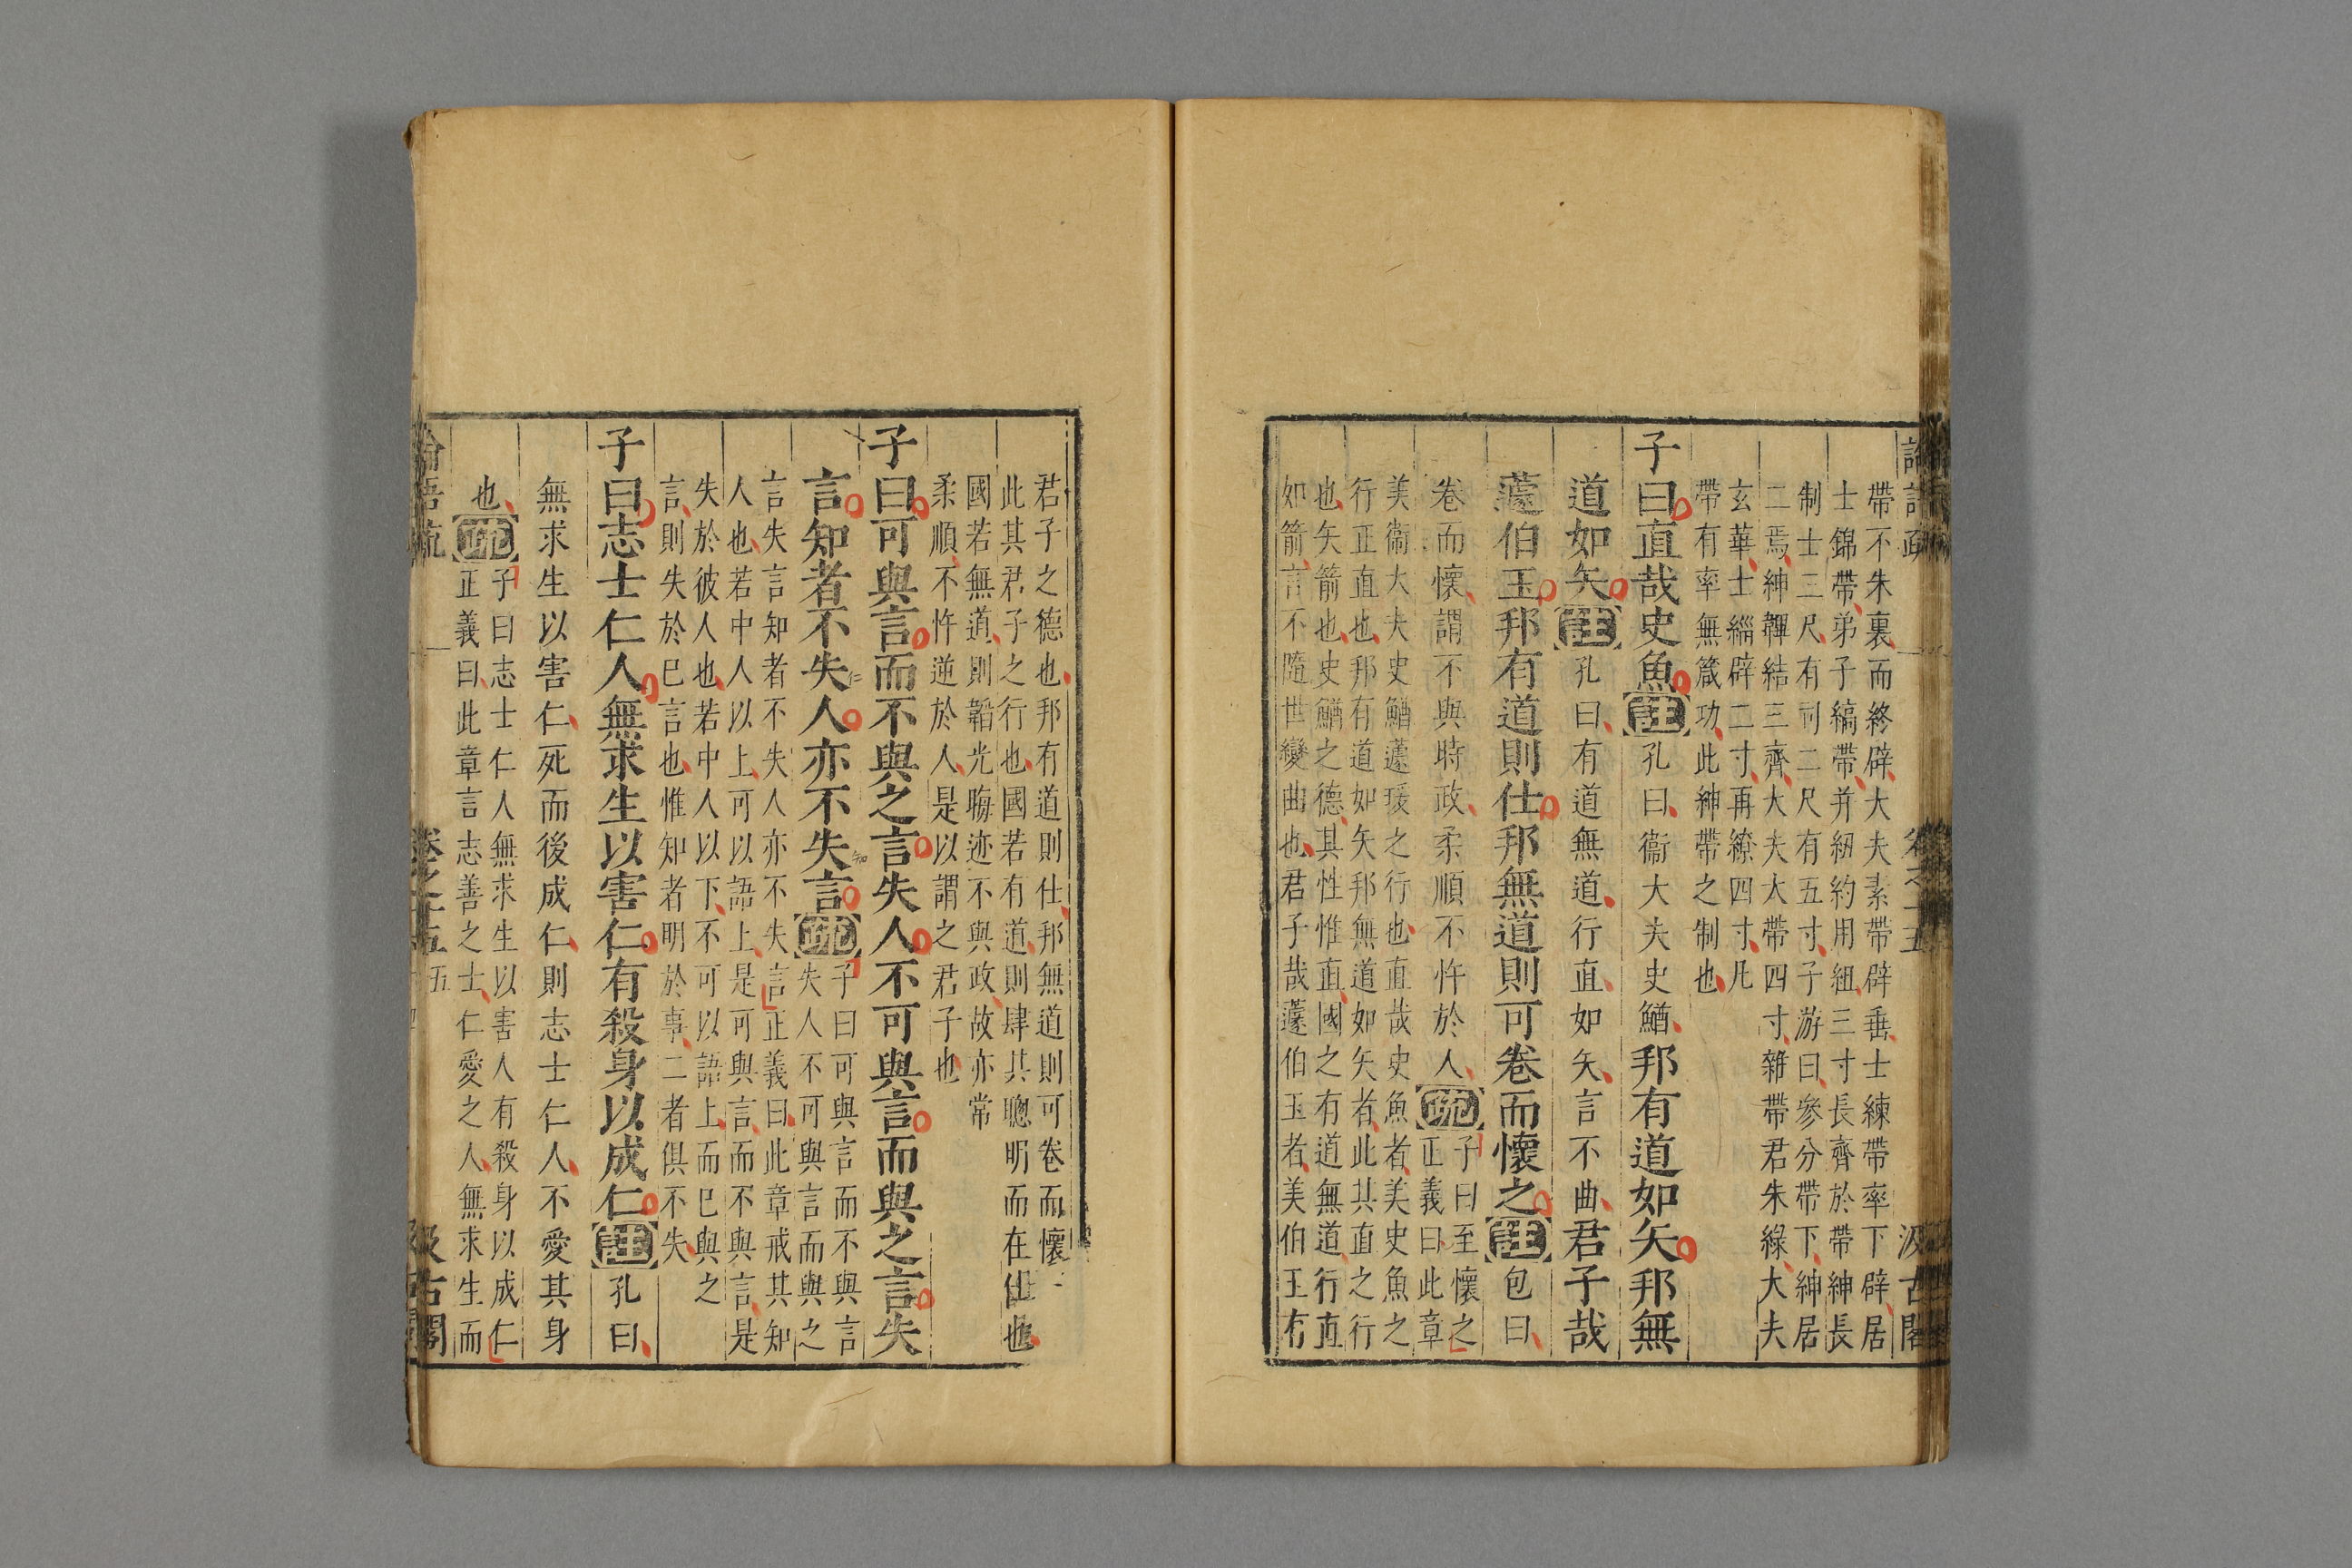 論語疏 卷之十五 汲古閣
帶不朱裏而終辟大夫素帶辟垂士練帶率下辟居
士錦帶弟子縞帶并紐約用組三寸長齊於帶紳長
制士三尺有司二尺有五寸子游曰參分帶下紳居
二焉紳韠結三齊大夫大帶四寸雜帶君朱綠大夫
玄華士緇辟二寸再繚四寸凡
帶有率無箴功此紳帶之制也
子曰直哉史魚註孔曰衞大夫史鰌邦有道如矢邦無
道如矢註孔曰有道無道行直如矢言不曲君子哉
蘧伯玉邦有道則仕邦無道則可卷而懷之註包曰
卷而懷謂不與時政柔順不忤於人疏子曰至懷之
正義曰此章
美衞大夫史鰌蘧瑗之行也直哉史魚者美史魚之
行正直也邦有道如矢邦無道如矢者此其直之行
也矢箭也史鰌之德其性惟直國之有道無道行直
如箭言不隨世變曲也君子哉蘧伯玉者美伯玉有
君子之德也邦有道則仕邦無道則可卷而懷
此其君子之行也國若有道則肆其聰明而在仕也
國若無道則韜光晦迹不與政故亦常
柔順不忤逆於人是以謂之君子也
子曰可與言而不與之言失人不可與言而與之言失
言知者不失人亦不失言疏子曰可與言而不與言
失人不可與言而與之
言失言知者不失人亦不失言正義曰此章戒其知
人也若中人以上可以語上是可與言而不與言是
失於彼人也若中人以下不可以語上而已與之
言則失於已言也惟知者明於事二者俱不失
子曰志士仁人無求生以害仁有殺身以成仁註孔曰
無求生以害仁死而後成仁則志士仁人不愛其身
也疏子曰志士仁人無求生以害人有殺身以成仁
正義曰此章言志善之士仁愛之人無求生而
論語疏 卷之十五 五 汲古閣